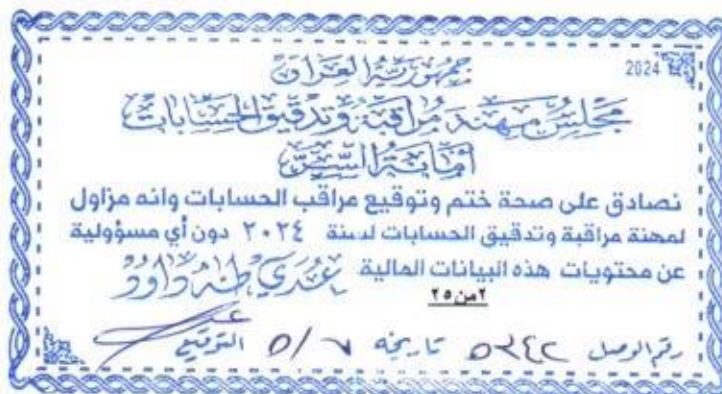 2024
جمهورية العراق
مجلس مهنة مراقبة وتدقيق الحسابات
أمانة السر
نصادق على صحة ختم وتوقيع مراقب الحسابات وانه مزاول
لمهنة مراقبة وتدقيق الحسابات لسنة ٢٠٢٤ دون أي مسؤولية
عن محتويات هذه البيانات المالية عدي طه داود
٢من٢٥
رقم الوصل تاريخه ٥/٧ التوقيع